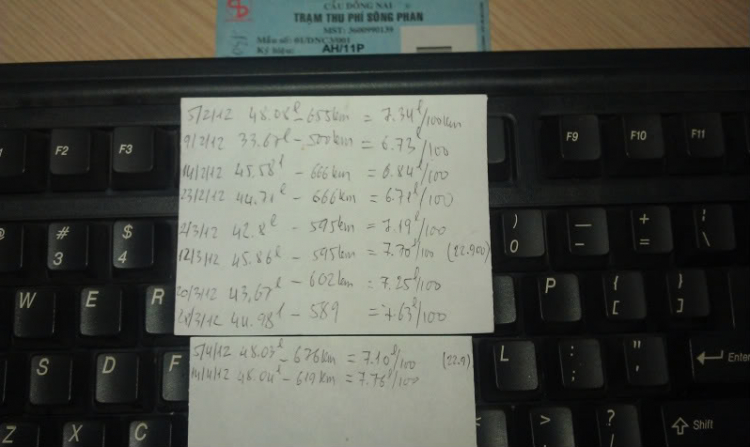 CẦU ĐỒNG NAI
TRẠM THU PHÍ SÔNG PHAN
MST: 3600990139
Mẫu số: 01/DNC3/001
Ký hiệu: AH/11P
5/2/12 48.08l - 655km = 7.34l/100km
9/2/12 33.67l - 500km = 6.73l/100
14/2/12 45.58l - 666km = 6.84l/100
23/2/12 44.71l - 666km = 6.71l/100
2/3/12 42.8l - 595km = 7.19l/100
12/3/12 45.86l - 595km = 7.70l/100 (22.900)
20/3/12 43,67l - 602km = 7.25l/100
3/12 44.98l - 589 = 7.63l/100
5/4/12 48.03l - 676km = 7.10l/100 (22.9)
14/4/12 48.04l - 619km = 7.76l/100
F2 F3 F9 F10 F11
# 3 $ 4 ) 0 — - + = ¦ \
W E R P { [ } ]
S D F L : ; " ' Enter
Z X C > . ? / Shift